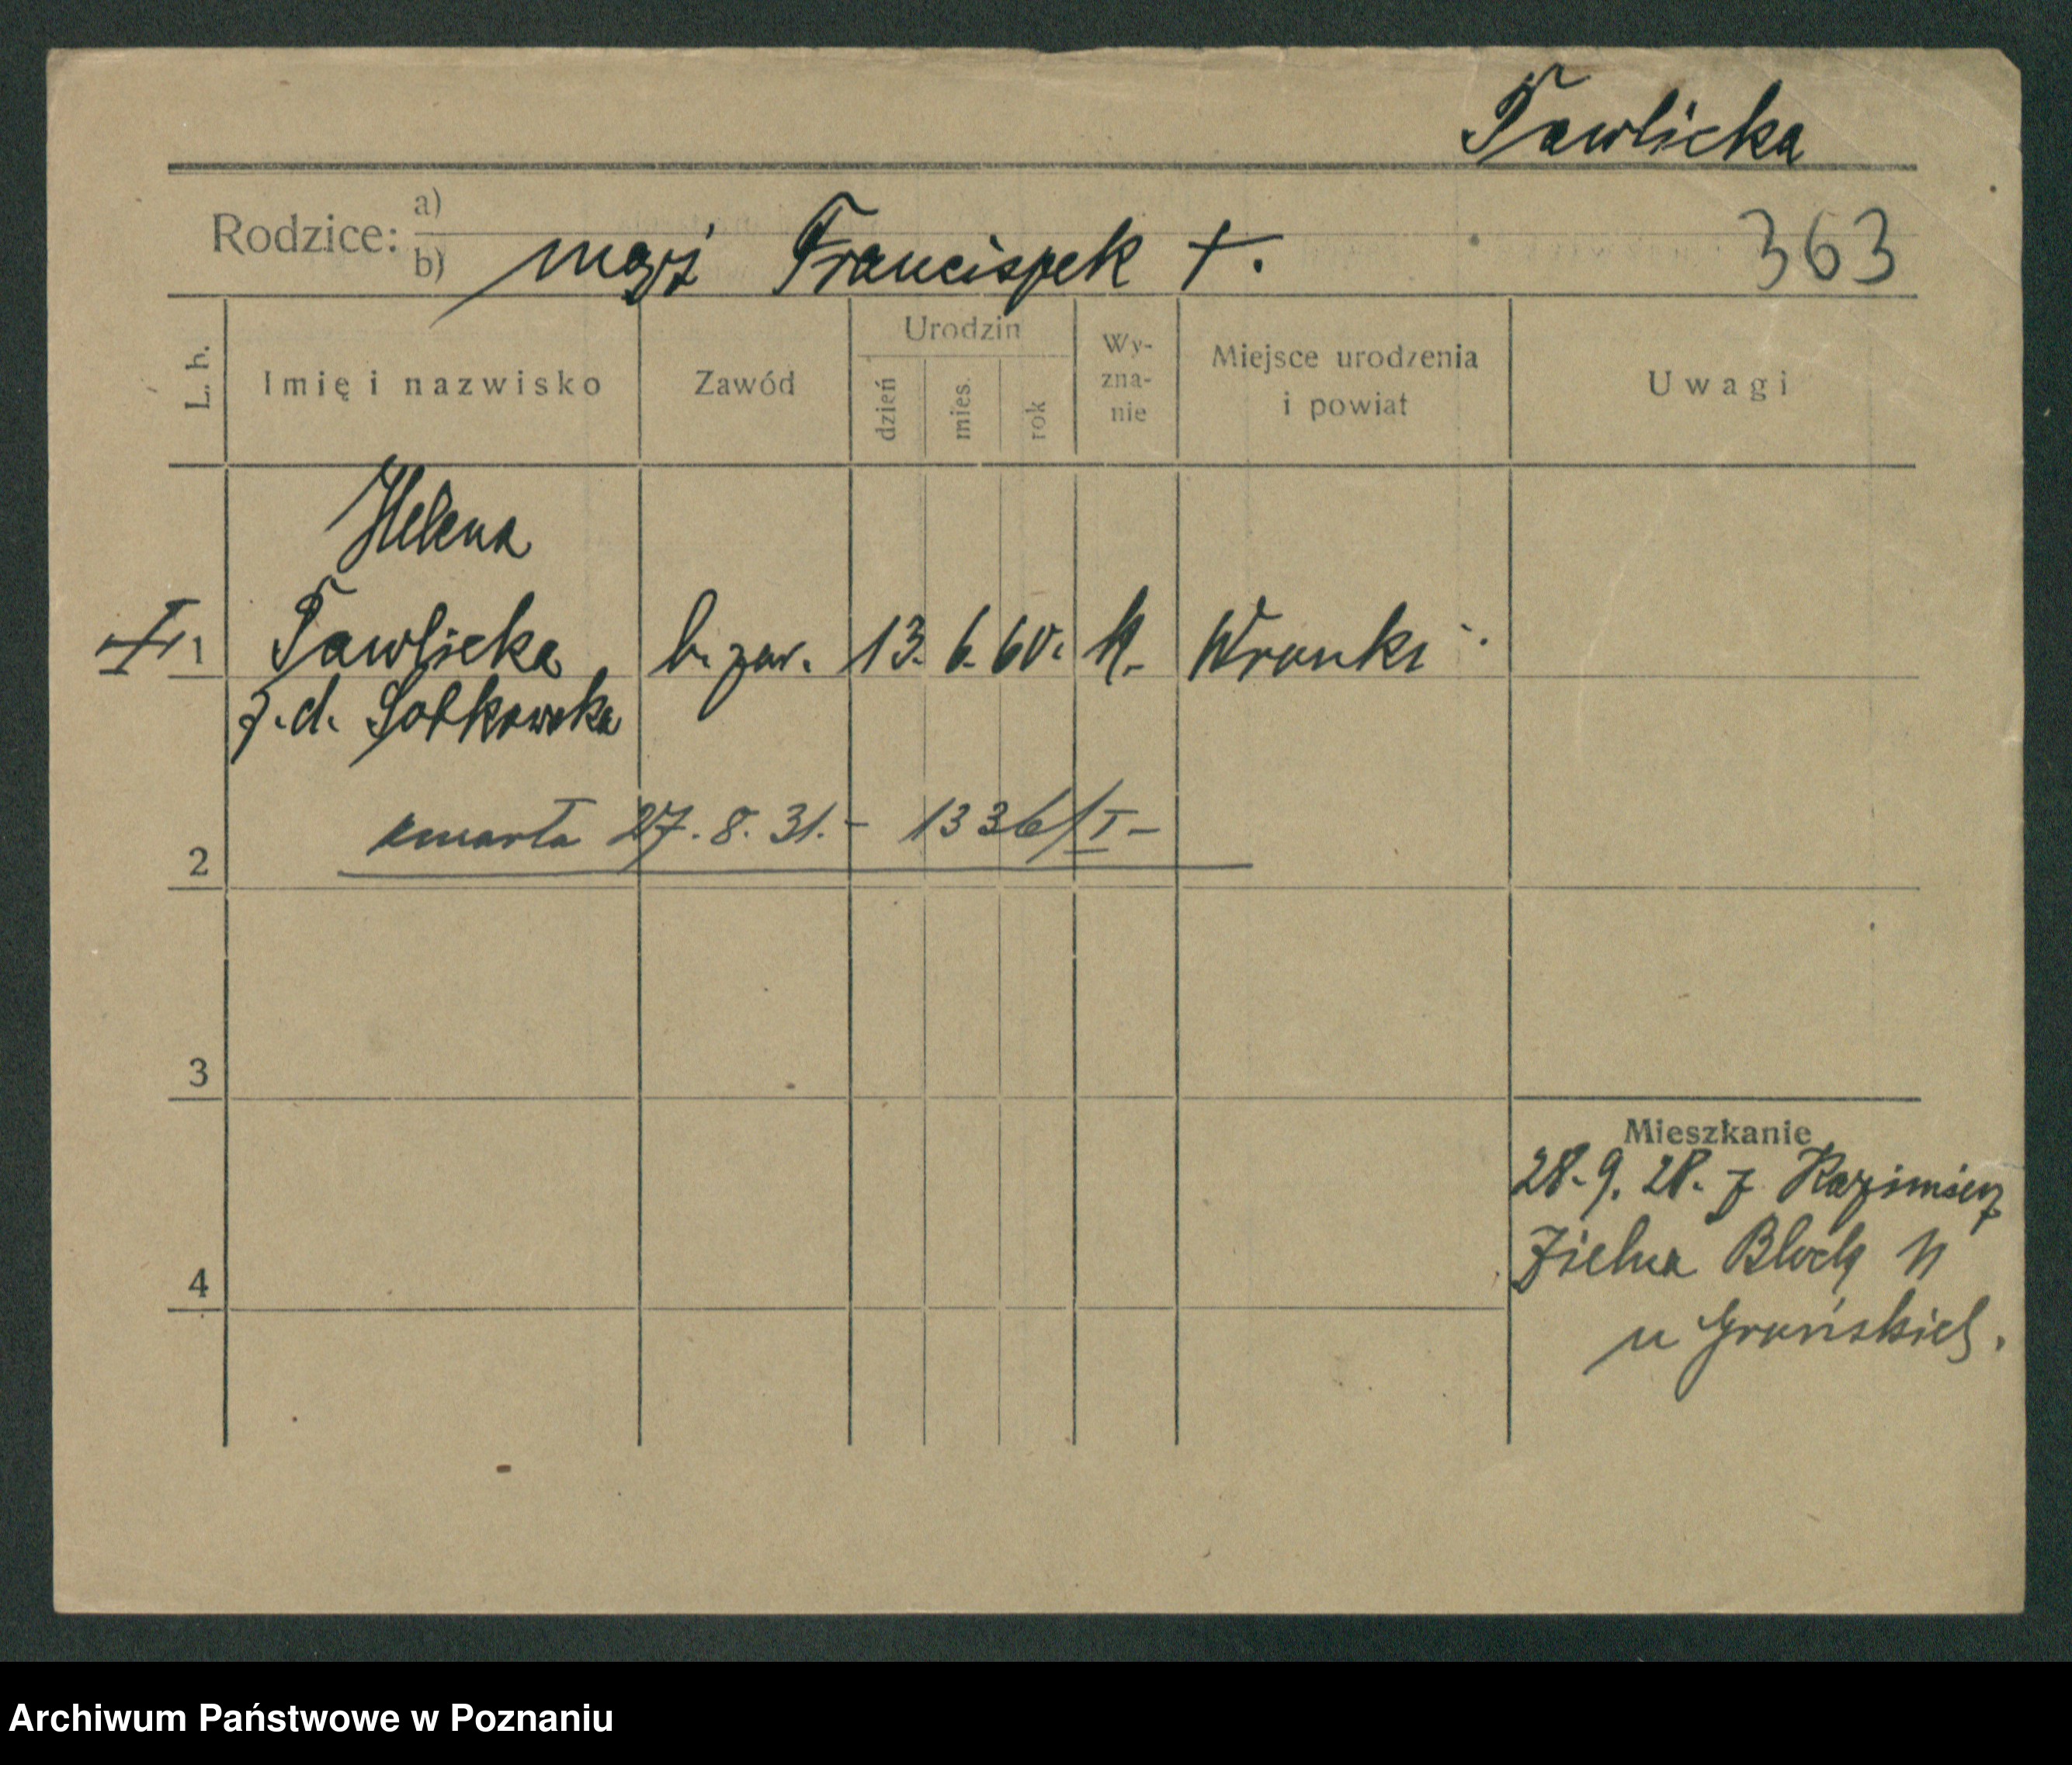 Pawlicka
Rodzice: a)
b) mąż Franciszek †.
363
L. b.
Imię i nazwisko
Zawód
Urodzin
dzień
mies.
rok
Wy-
zna-
nie
Miejsce urodzenia
i powiat
Uwagi
Helena
1 Pawlicka b. zaw. 13. 6. 60. k. Wronki
z. d. Sobkowska
zmarła 27. 8. 31. – 1336/I –
2
3
Mieszkanie
28. 9. 28. z Kazimierz
4 Zielna Block
u Grońskich.
Archiwum Państwowe w Poznaniu